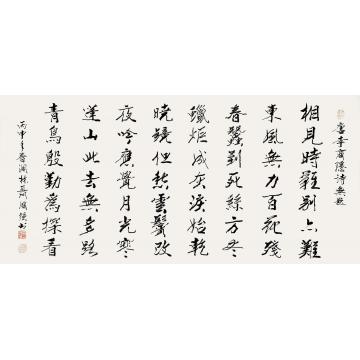 唐李商隱詩無題
相見時難別亦難
東風無力百花殘
春蠶到死絲方尽
蠟炬成灰淚始乾
曉鏡但愁雲鬢改
夜吟應覺月光寒
蓬山此去無多路
青鳥殷勤為探看
丙申年春